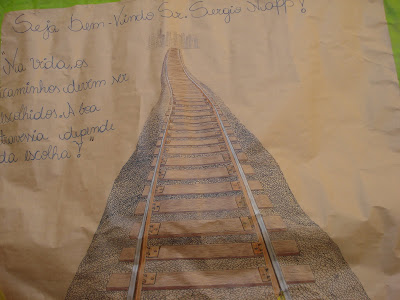 Seja Bem-Vindo Sr. Sergio Napp!
"Na vida, os
caminhos devem ser
escolhidos. A boa
travessia depende
da escolha!"